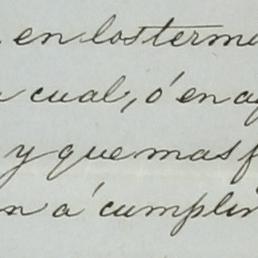 en los term
cual, ó en a
y que mas f
n a' cumplir